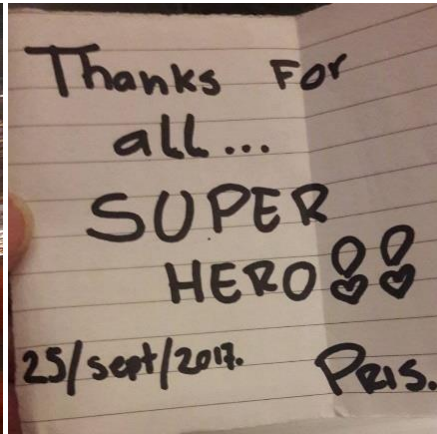 Thanks For
all...
SUPER
HERO!!
25/sept/2017. PRIS.